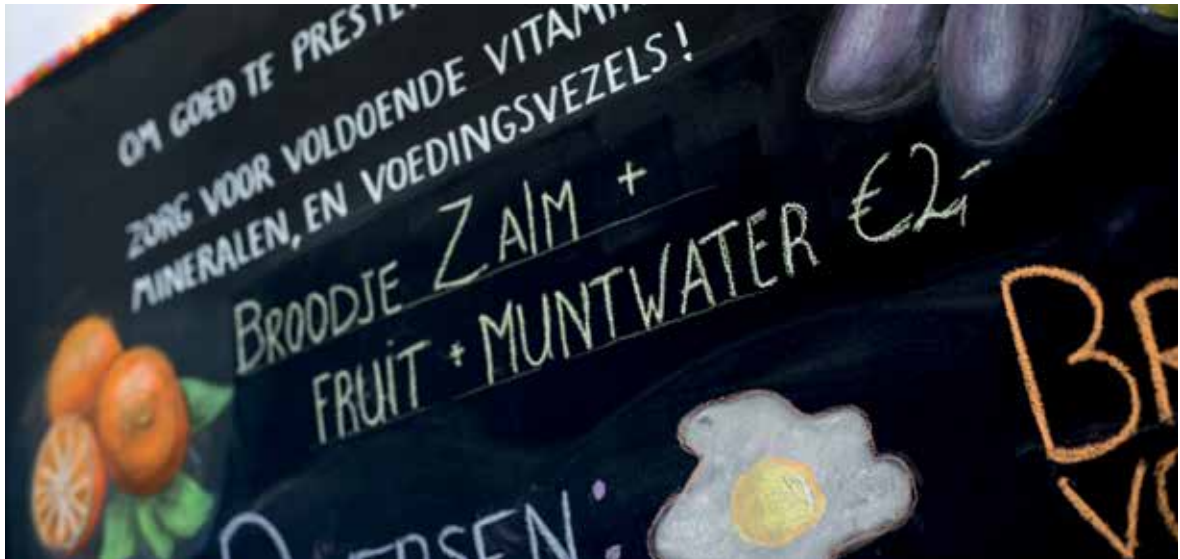 OM GOED TE PRESTE
ZORG VOOR VOLDOENDE VITAMIN
MINERALEN, EN VOEDINGSVEZELS!
BROODJE ZALM +
FRUIT + MUNTWATER €2,-
BR
VO